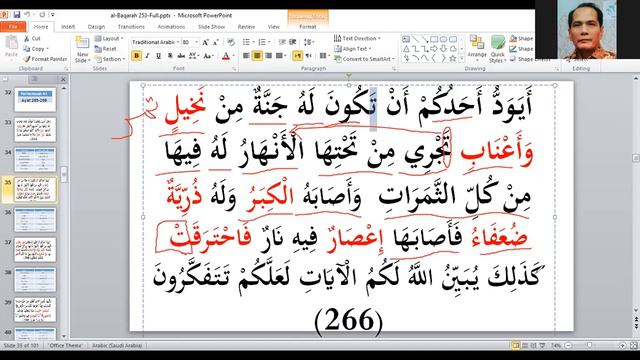 al-Baqarah 253-Full.pptx - Microsoft PowerPoint
File
Home
Insert
Design
Transitions
Animations
Slide Show
Review
View
Format
Cut
Copy
Format Painter
Paste
Clipboard
Layout
Reset
Section
New Slide
Slides
Traditional Arabic
80
Font
Text Direction
Align Text
Convert to SmartArt
Paragraph
Arrange
Quick Styles
Shape Fill
Shape Outline
Shape Effects
Drawing
Find
Replace
Select
Editing
32
35
40
أَيَوَدُّ أَحَدُكُمْ أَنْ تَكُونَ لَهُ جَنَّةٌ مِنْ نَخِيلٍ
وَأَعْنَابٍ تَجْرِي مِنْ تَحْتِهَا الْأَنْهَارُ لَهُ فِيهَا
مِنْ كُلِّ الثَّمَرَاتِ وَأَصَابَهُ الْكِبَرُ وَلَهُ ذُرِّيَّةٌ
ضُعَفَاءُ فَأَصَابَهَا إِعْصَارٌ فِيهِ نَارٌ فَاحْتَرَقَتْ
كَذَلِكَ يُبَيِّنُ اللَّهُ لَكُمُ الْآيَاتِ لَعَلَّكُمْ تَتَفَكَّرُونَ
(266)
Slide 35 of 101
"Office Theme"
Arabic (Saudi Arabia)
74%